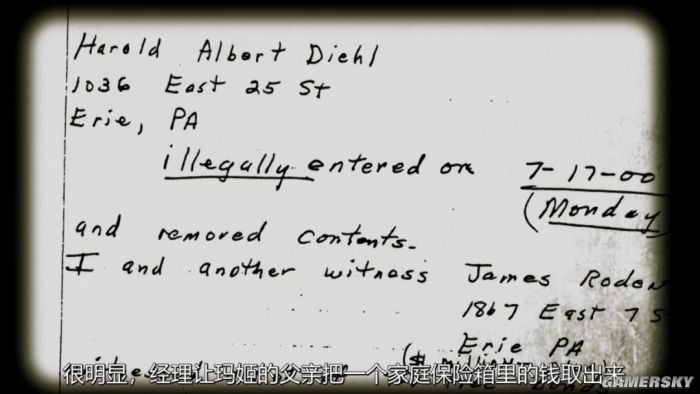 Harold Albert Diehl
1036 East 25 St
Erie, PA
illegally entered on 7-17-00
(Monday
and removed contents.
I and another witness James Roden
1867 East 7 S
Erie PA
($ million
很明显，经理让玛姬的父亲把一个家庭保险箱里的钱取出来
GAMERSKY